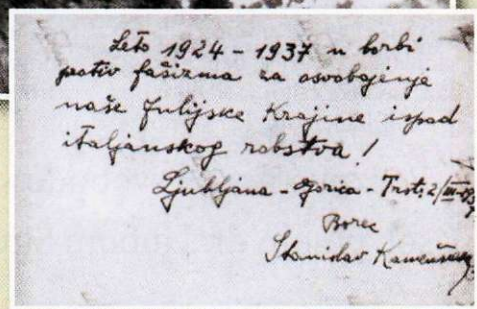 Leto 1924 - 1937 u borbi
protiv fašizma za osvobojenje
naše Julijske Krajine ispod
italjanskog robstva!
Ljubljana - Gorica - Trst, 2/III-
Borec
Stanislav